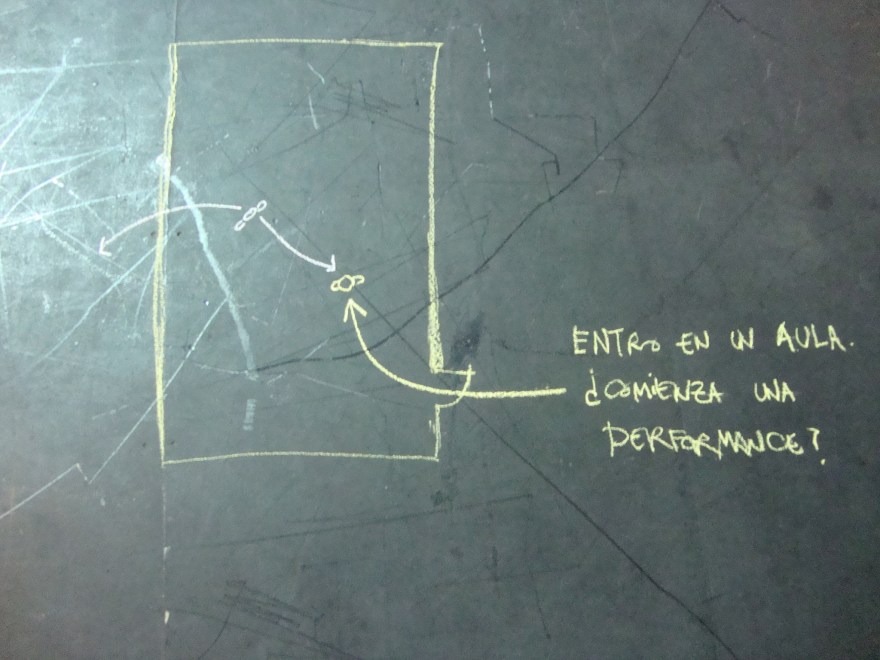 ENTRO EN UN AULA.
¿COMIENZA UNA
PERFORMANCE?